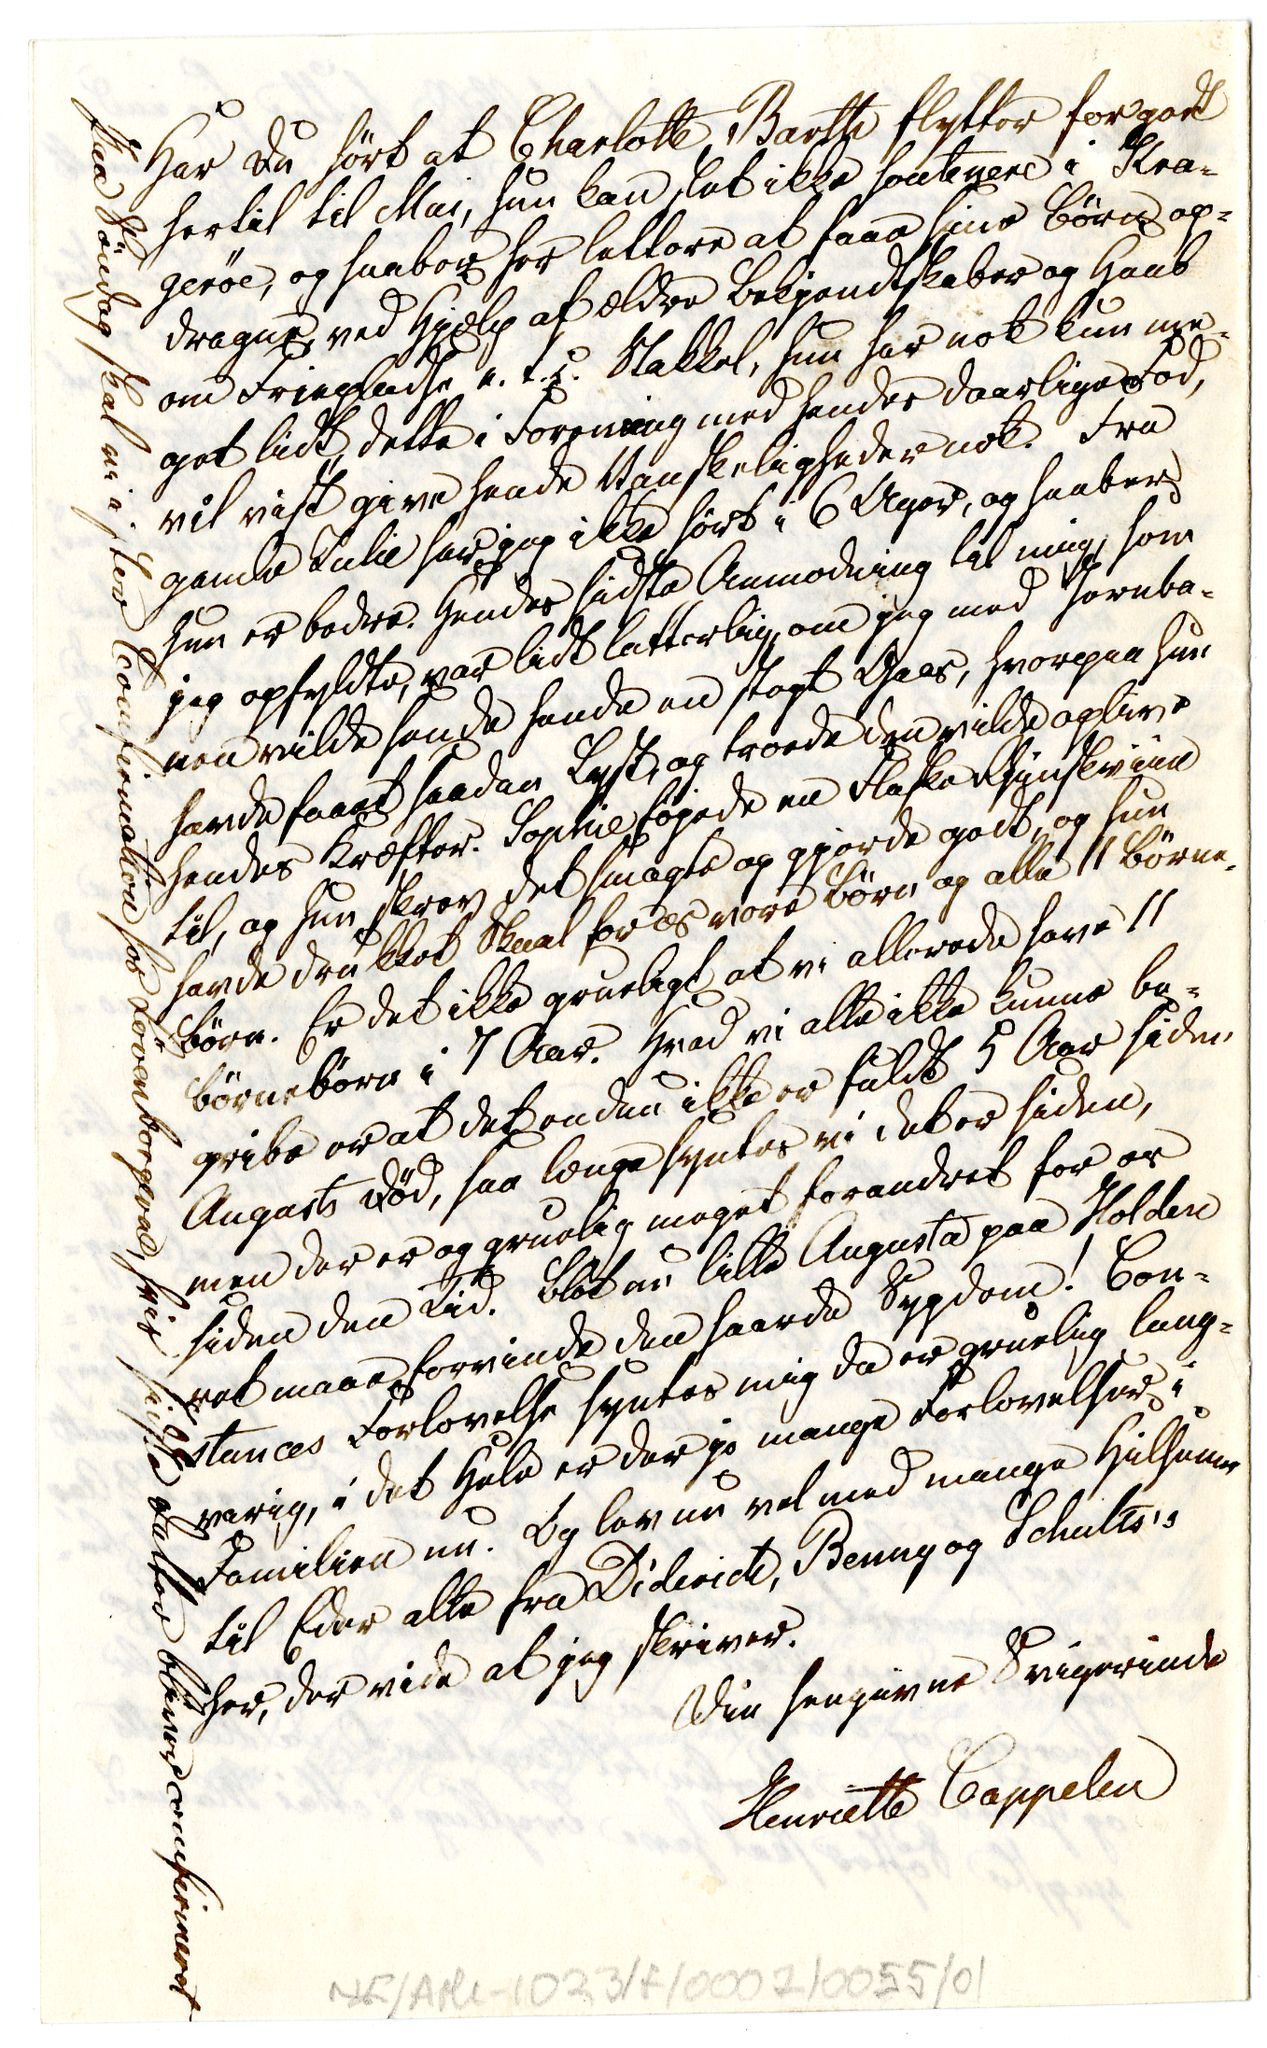 Har du hørt at Charlotte Barth flytter for godt
hertil til Mai, hun kan slet ikke soutenere i Kra-
gerøe, og haaber her lettere at faae sine Børn op-
dragne, ved Hjælp af ældre Bekjendtskaber og Haab
om Friepladse e. t. c. Stakkel, hun har nok kun me-
get lidt, dette i Forening med hendes daarlige Fod,
vil vist give hende Vanskeligheder nok. Fra
gamle Julie har jeg ikke hørt i 6 Uger, og haaber
hun er bedre. Hendes sidste Anmodning til mig, som
jeg opfyldte, var lidt latterlig, om jeg med Jernba-
nen vilde sende hende en stegt Gaas, hvorpaa hun
havde faaet saadan Lyst, og troede den vilde oplive
hendes Kræfter. Sophie føjede en Flaske Rhinskviin
til, og hun skrev det smagte og gjorde godt, og hun
havde drukket Skaal for os vore Børn og alle 11 Børne-
børn. Er det ikke grueligt at vi allerede have 11
Børnebørn i 7 Aar. Hvad vi alle ikke kunne be-
gribe er at det endnu ikke er fuldt 5 Aar siden
Augusts Død, saa længe syntes vi det er siden,
men der er og gruelig meget forandret for os
siden den Tid. Blot nu lille Augusta paa Holden
ret maae forvinde den haarde Sygdom! Con-
stances Forlovelse syntes mig da er gruelig lang-
varig, i det Hele er der jo mange Forlovelser i
Familien nu. Og lev nu vel med mange Hilsener
til Eder alle fra Diderich, Benny og Schultz's
her, der vide at jeg skriver.
Din hengivne Svigerinde
Henriette Cappelen
Paa Søndag skal vi i stor Confirmation hos Løvenborgene, hvis sidste Datter bliver confirmeret
NF/Ark-1023/F/0002/0055/01